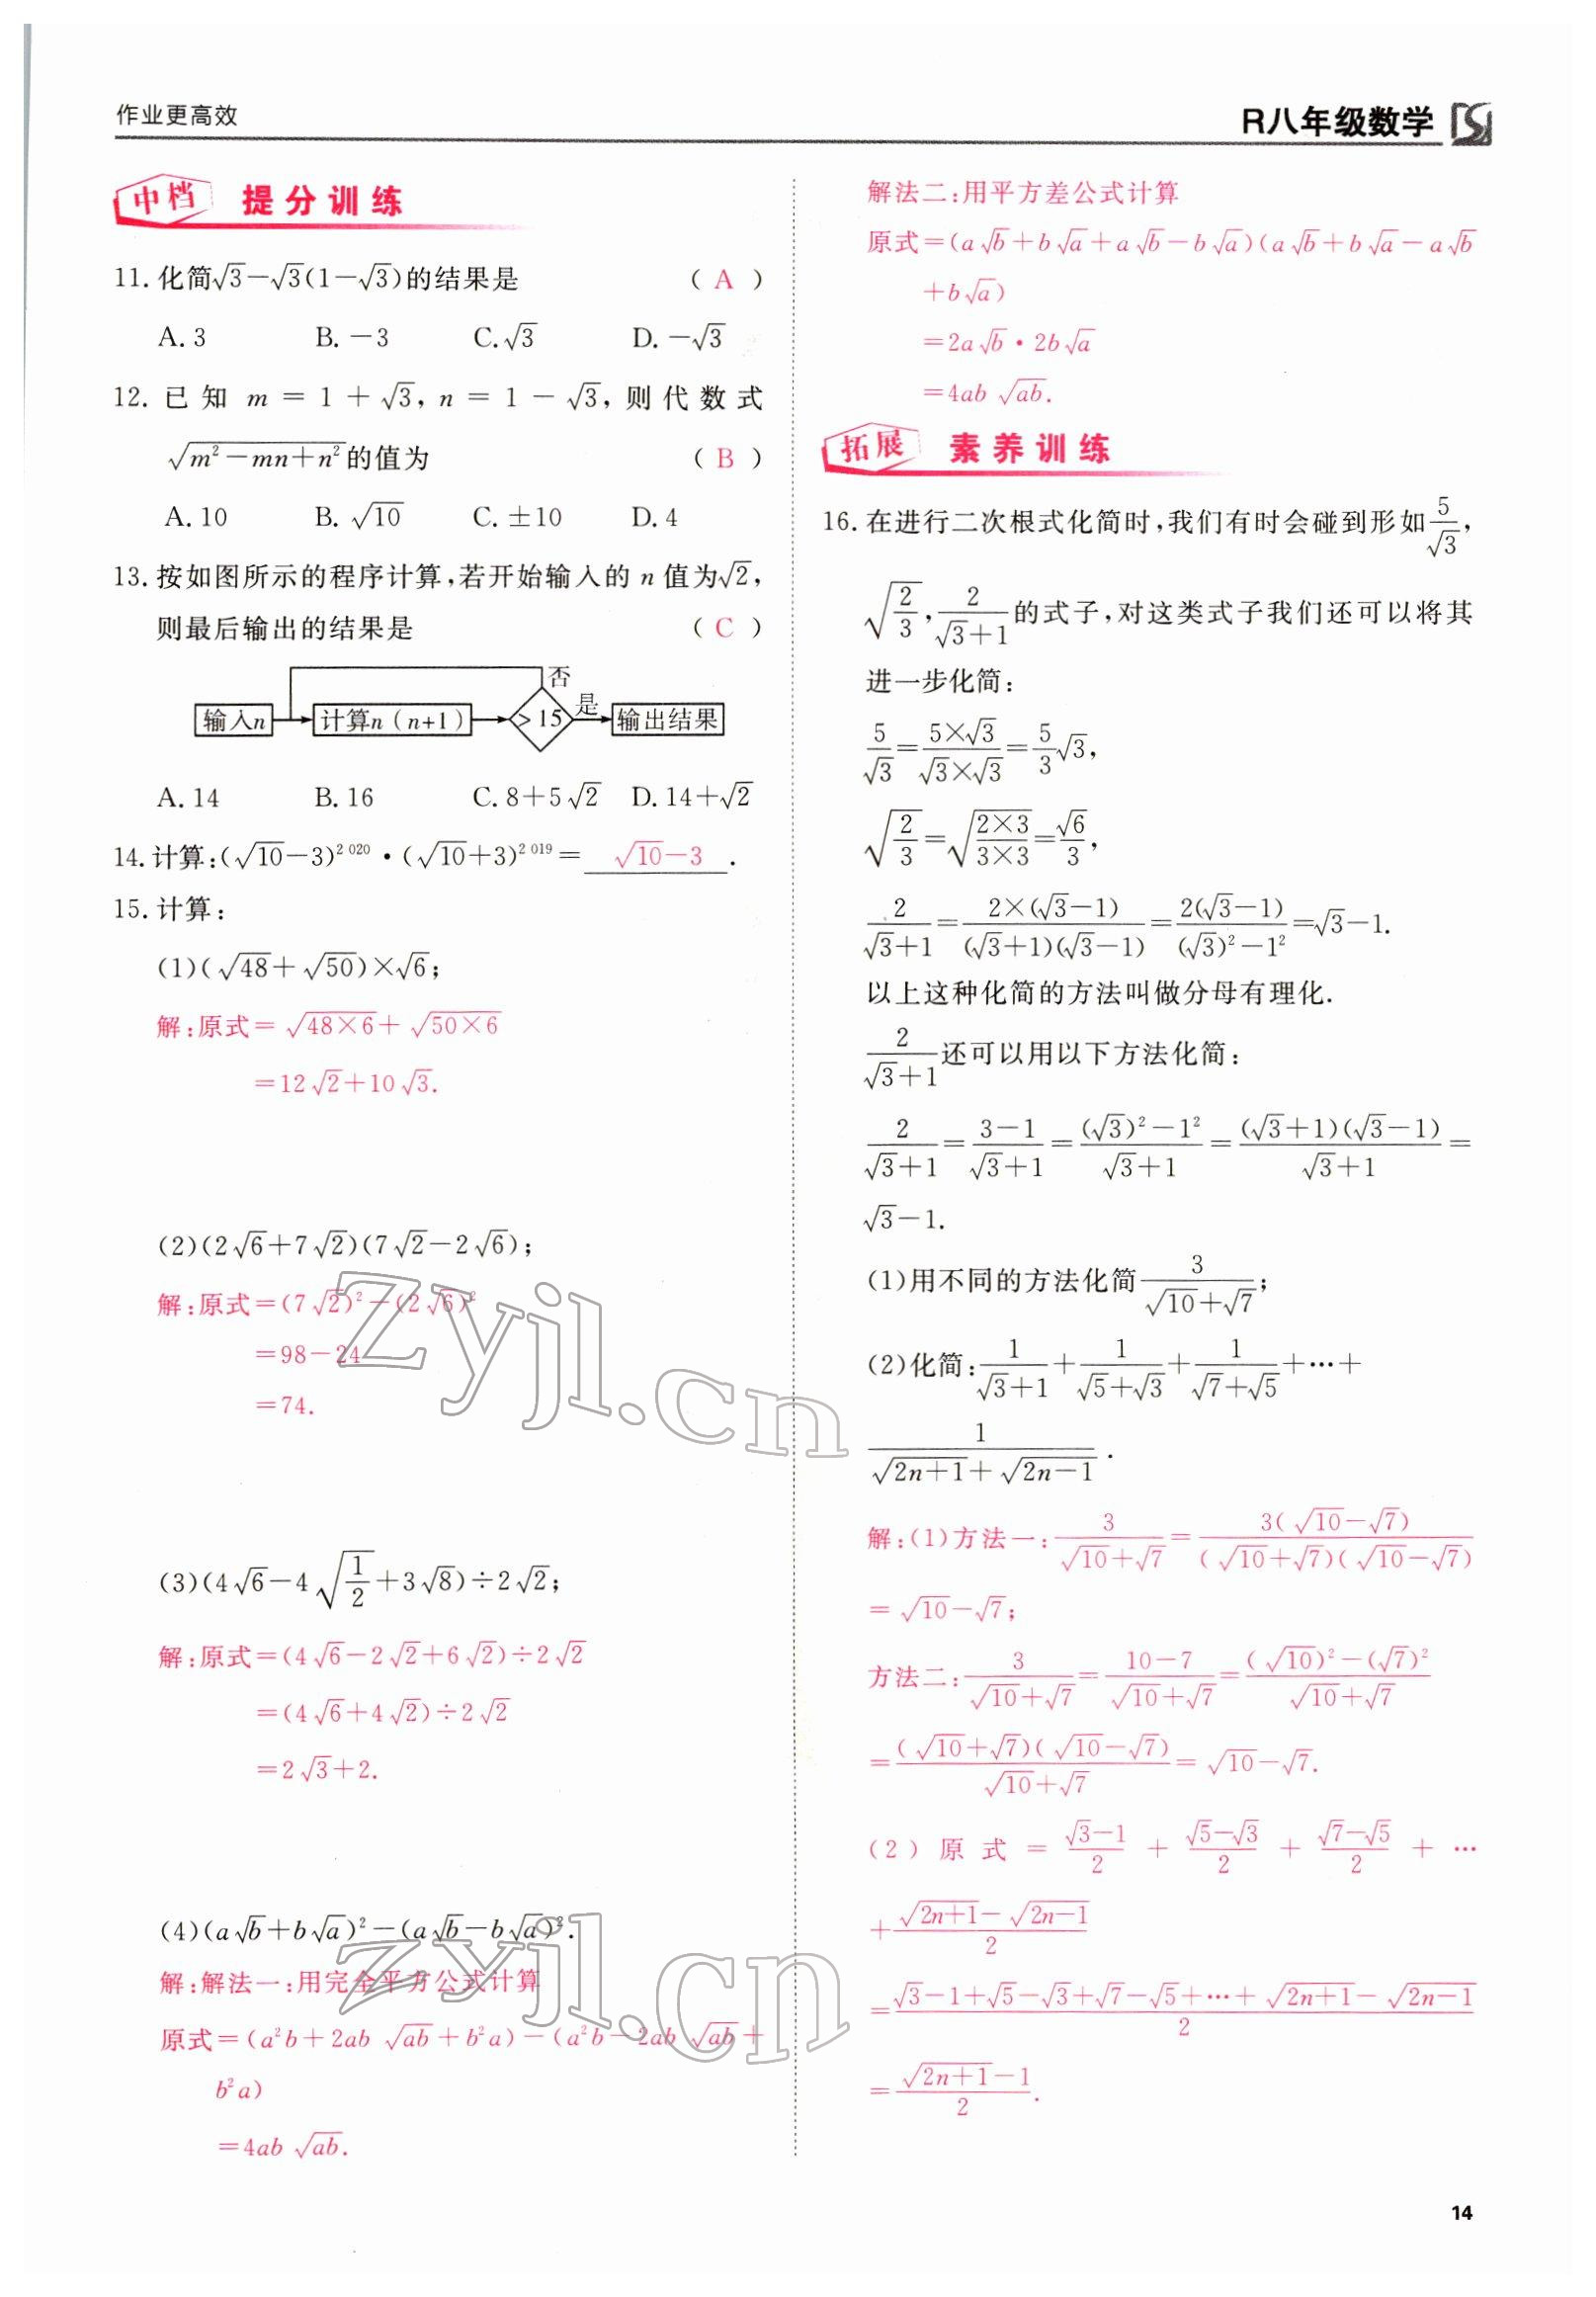 作业更高效
R八年级数学
中档 提分训练
11. 化简√3−√3(1−√3)的结果是 ( A )
A. 3 B. −3 C. √3 D. −√3
12. 已知 m = 1 + √3, n = 1 − √3, 则代数式
√(m²−mn+n²)的值为 ( B )
A. 10 B. √10 C. ±10 D. 4
13. 按如图所示的程序计算,若开始输入的 n 值为√2,
则最后输出的结果是 ( C )
否
输入n 计算n(n+1) >15 是 输出结果
A. 14 B. 16 C. 8+5√2 D. 14+√2
14. 计算:(√10−3)^2 020·(√10+3)^2 019= √10−3 .
15. 计算:
(1)(√48+√50)×√6;
解:原式=√(48×6)+√(50×6)
=12√2+10√3.
(2)(2√6+7√2)(7√2−2√6);
解:原式=(7√2)²−(2√6)²
=98−24
=74.
(3)(4√6−4√(1/2)+3√8)÷2√2;
解:原式=(4√6−2√2+6√2)÷2√2
=(4√6+4√2)÷2√2
=2√3+2.
(4)(a√b+b√a)²−(a√b−b√a)².
解:解法一:用完全平方公式计算
原式=(a²b+2ab√ab+b²a)−(a²b−2ab√ab+
b²a)
=4ab√ab.
解法二:用平方差公式计算
原式=(a√b+b√a+a√b−b√a)(a√b+b√a−a√b
+b√a)
=2a√b·2b√a
=4ab√ab.
拓展 素养训练
16. 在进行二次根式化简时,我们有时会碰到形如5/√3,
√(2/3),2/(√3+1)的式子,对这类式子我们还可以将其
进一步化简:
5/√3=(5×√3)/(√3×√3)=5/3√3,
√(2/3)=√((2×3)/(3×3))=√6/3,
2/(√3+1)=2×(√3−1)/((√3+1)(√3−1))=2(√3−1)/((√3)²−1²)=√3−1.
以上这种化简的方法叫做分母有理化.
2/(√3+1)还可以用以下方法化简:
2/(√3+1)=(3−1)/(√3+1)=((√3)²−1²)/(√3+1)=(√3+1)(√3−1)/(√3+1)=
√3−1.
(1)用不同的方法化简3/(√10+√7);
(2)化简:1/(√3+1)+1/(√5+√3)+1/(√7+√5)+…+
1/(√(2n+1)+√(2n−1)).
解:(1)方法一:3/(√10+√7)=3(√10−√7)/((√10+√7)(√10−√7))
=√10−√7;
方法二:3/(√10+√7)=(10−7)/(√10+√7)=((√10)²−(√7)²)/(√10+√7)
=(√10+√7)(√10−√7)/(√10+√7)=√10−√7.
(2)原式=(√3−1)/2+(√5−√3)/2+(√7−√5)/2+…
+(√(2n+1)−√(2n−1))/2
=(√3−1+√5−√3+√7−√5+…+√(2n+1)−√(2n−1))/2
=(√(2n+1)−1)/2.
zyjl.cn
zyjl.cn
14